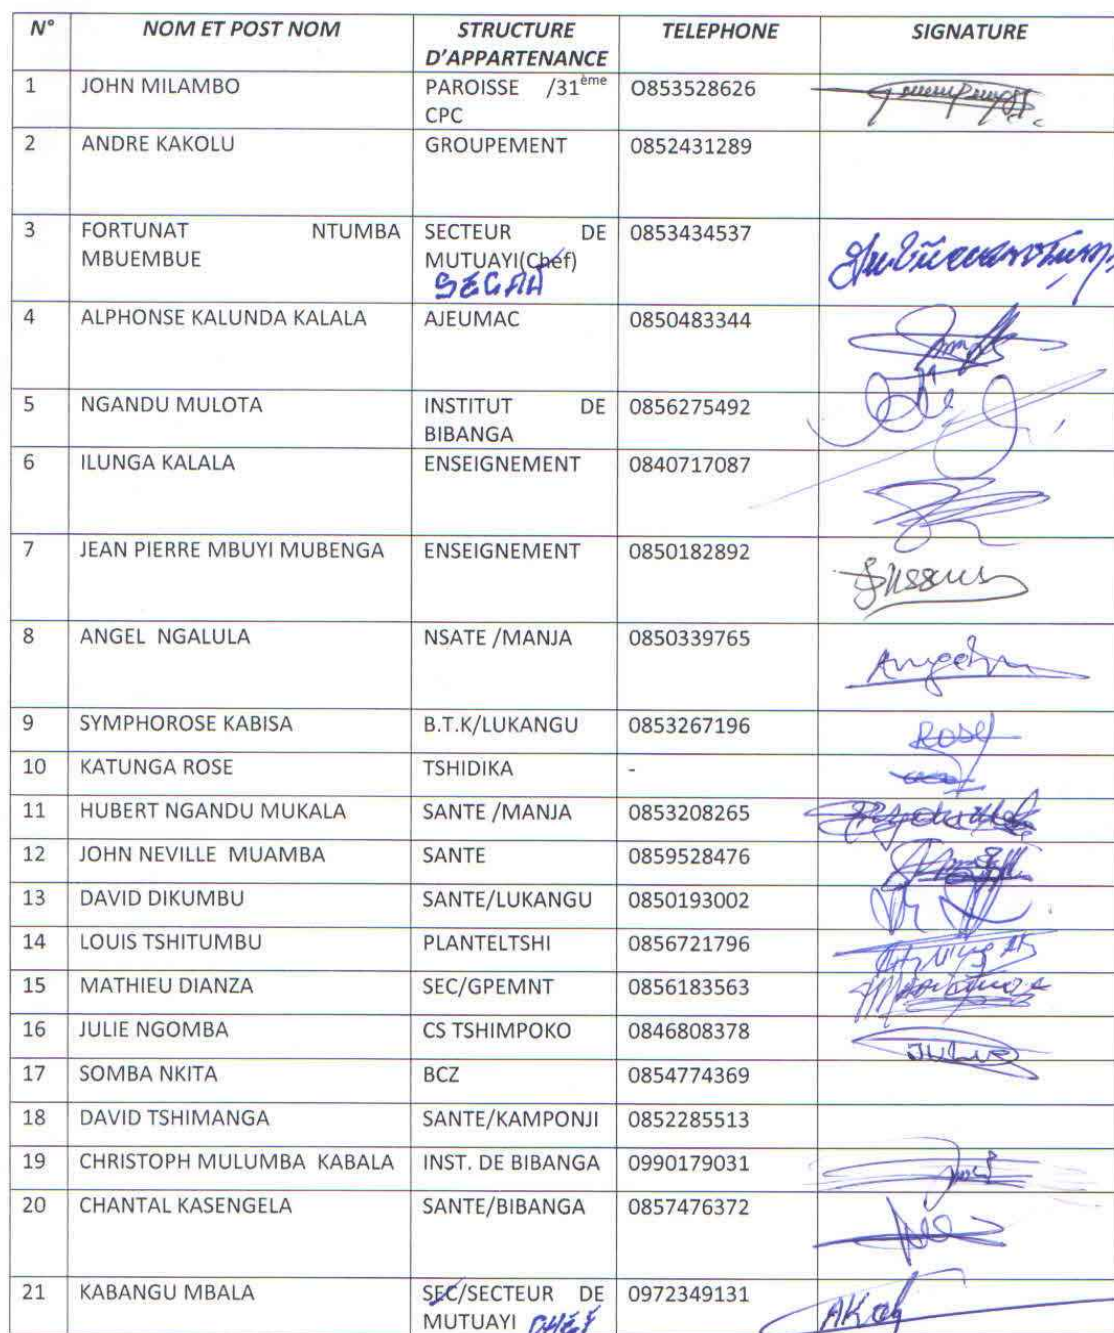 N° NOM ET POST NOM STRUCTURE D'APPARTENANCE TELEPHONE SIGNATURE
1 JOHN MILAMBO PAROISSE /31ème CPC O853528626
2 ANDRE KAKOLU GROUPEMENT 0852431289
3 FORTUNAT NTUMBA MBUEMBUE SECTEUR DE MUTUAYI(Chef) SECAD 0853434537
4 ALPHONSE KALUNDA KALALA AJEUMAC 0850483344
5 NGANDU MULOTA INSTITUT DE BIBANGA 0856275492
6 ILUNGA KALALA ENSEIGNEMENT 0840717087
7 JEAN PIERRE MBUYI MUBENGA ENSEIGNEMENT 0850182892
8 ANGEL NGALULA NSATE /MANJA 0850339765
9 SYMPHOROSE KABISA B.T.K/LUKANGU 0853267196 Rose
10 KATUNGA ROSE TSHIDIKA -
11 HUBERT NGANDU MUKALA SANTE /MANJA 0853208265
12 JOHN NEVILLE MUAMBA SANTE 0859528476
13 DAVID DIKUMBU SANTE/LUKANGU 0850193002
14 LOUIS TSHITUMBU PLANTELTSHI 0856721796
15 MATHIEU DIANZA SEC/GPEMNT 0856183563
16 JULIE NGOMBA CS TSHIMPOKO 0846808378
17 SOMBA NKITA BCZ 0854774369
18 DAVID TSHIMANGA SANTE/KAMPONJI 0852285513
19 CHRISTOPH MULUMBA KABALA INST. DE BIBANGA 0990179031
20 CHANTAL KASENGELA SANTE/BIBANGA 0857476372
21 KABANGU MBALA SEC/SECTEUR DE MUTUAYI CHEF 0972349131